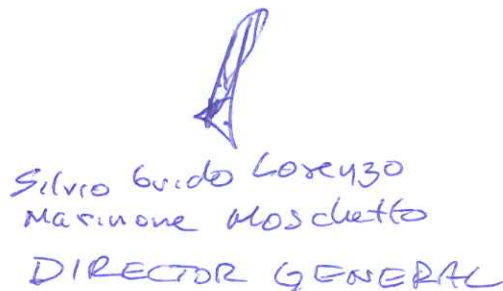 Silvio Guido Lorenzo
Marinone Moschetto
DIRECTOR GENERAL